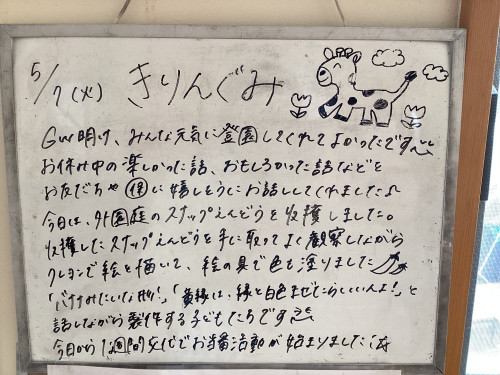 5/7(火) きりんぐみ
GW明け、みんな元気に登園してくれてよかったです
お休み中の楽しかった話、おもしろかった話などを
お友だちや保に嬉しそうにお話ししてくれました♫
今日は、外園庭のスナップえんどうを収穫しました。
収穫したスナップえんどうを手に取ってよく観察しながら
クレヨンで絵を描いて、絵の具で色も塗りました
「バナナみたいな形!」、「黄緑は、緑と白色まぜたらいいんよ!」と
話しながら製作する子どもたちです
今日から1週間交代でお当番活動が始まりました